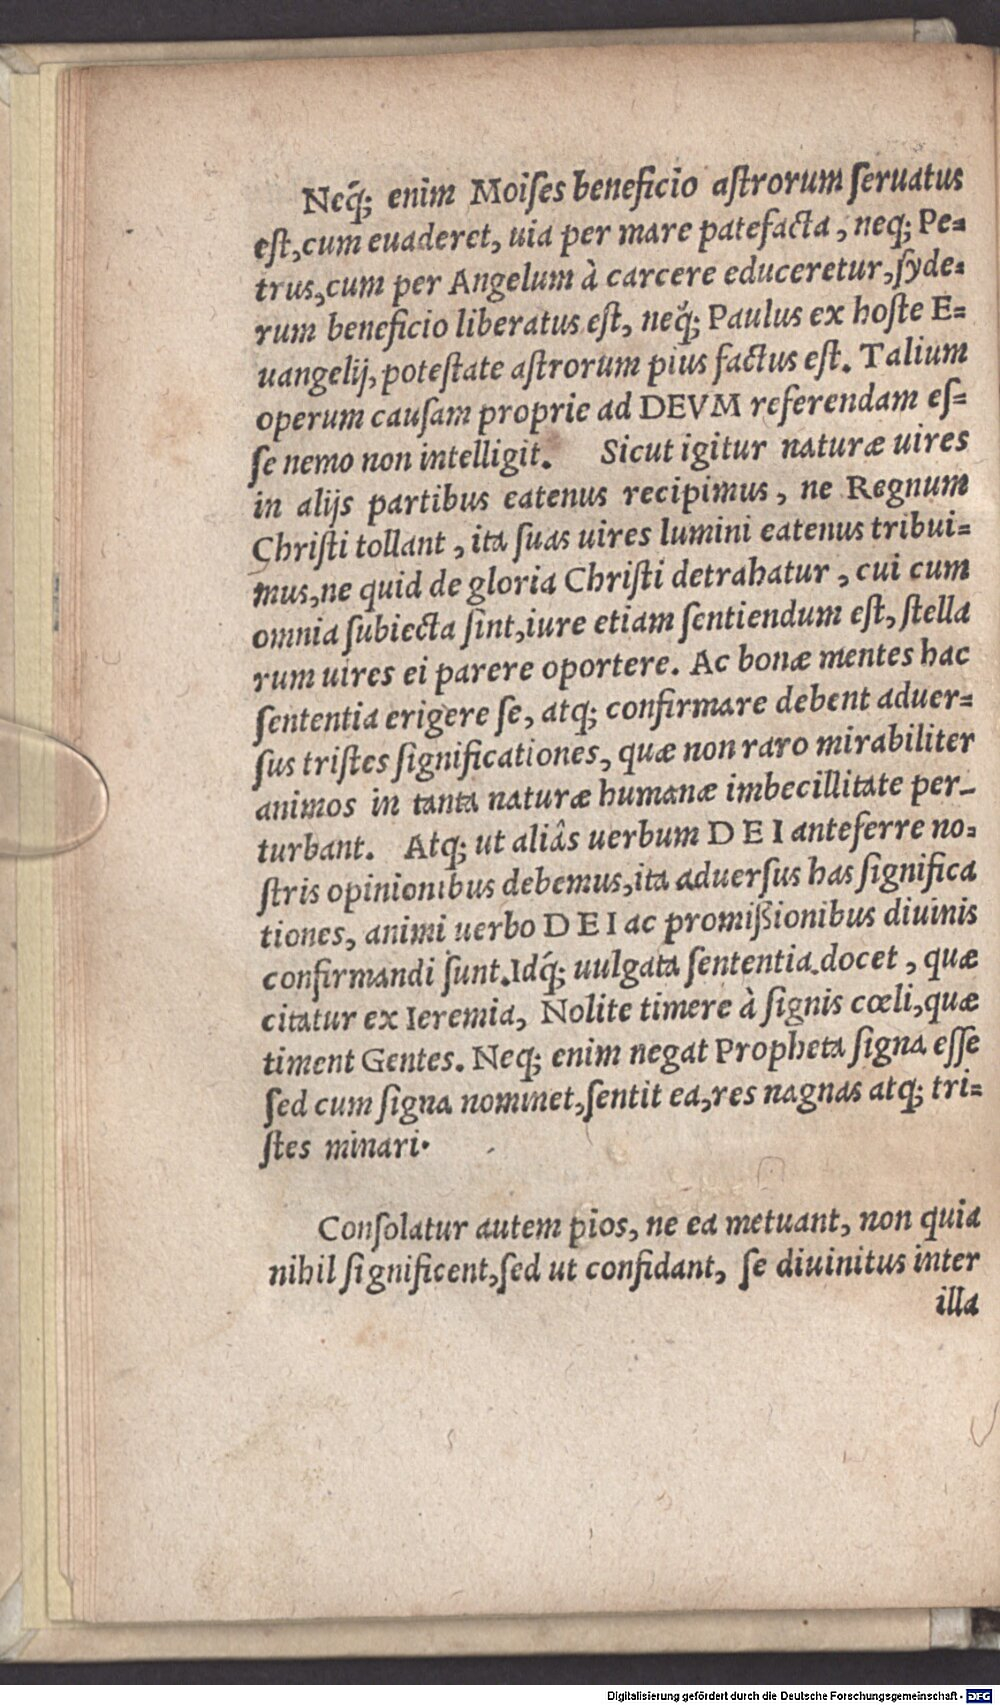 Neq́; enim Moiſes beneficio aſtrorum ſeruatus
eſt, cum euaderet, uia per mare patefacta, neq; Pe-
trus, cum per Angelum à carcere educeretur, ſyde-
rum beneficio liberatus eſt, neq́; Paulus ex hoſte E-
uangelij, poteſtate aſtrorum pius factus eſt. Talium
operum cauſam proprie ad DEVM referendam eſ-
ſe nemo non intelligit. Sicut igitur naturæ uires
in alijs partibus eatenus recipimus, ne Regnum
Chriſti tollant, ita ſuas uires lumini eatenus tribui-
mus, ne quid de gloria Chriſti detrahatur, cui cum
omnia ſubiecta ſint, iure etiam ſentiendum eſt, ſtella
rum uires ei parere oportere. Ac bonæ mentes hac
ſententia erigere ſe, atq; confirmare debent aduer-
ſus triſtes ſignificationes, quæ non raro mirabiliter
animos in tanta naturæ humanæ imbecillitate per-
turbant. Atq; ut aliâs uerbum DEI anteferre no-
ſtris opinionibus debemus, ita aduerſus has ſignifica
tiones, animi uerbo DEI ac promißionibus diuinis
confirmandi ſunt. Idq́; uulgata ſententia docet, quæ
citatur ex Ieremia, Nolite timere à ſignis cœli, quæ
timent Gentes. Neq; enim negat Propheta ſigna eſſe
ſed cum ſigna nominet, ſentit ea, res nagnas atq; tri-
ſtes minari.
Conſolatur autem pios, ne ea metuant, non quia
nihil ſignificent, ſed ut confidant, ſe diuinitus inter
illa
Digitalisierung gefördert durch die Deutsche Forschungsgemeinschaft - DFG